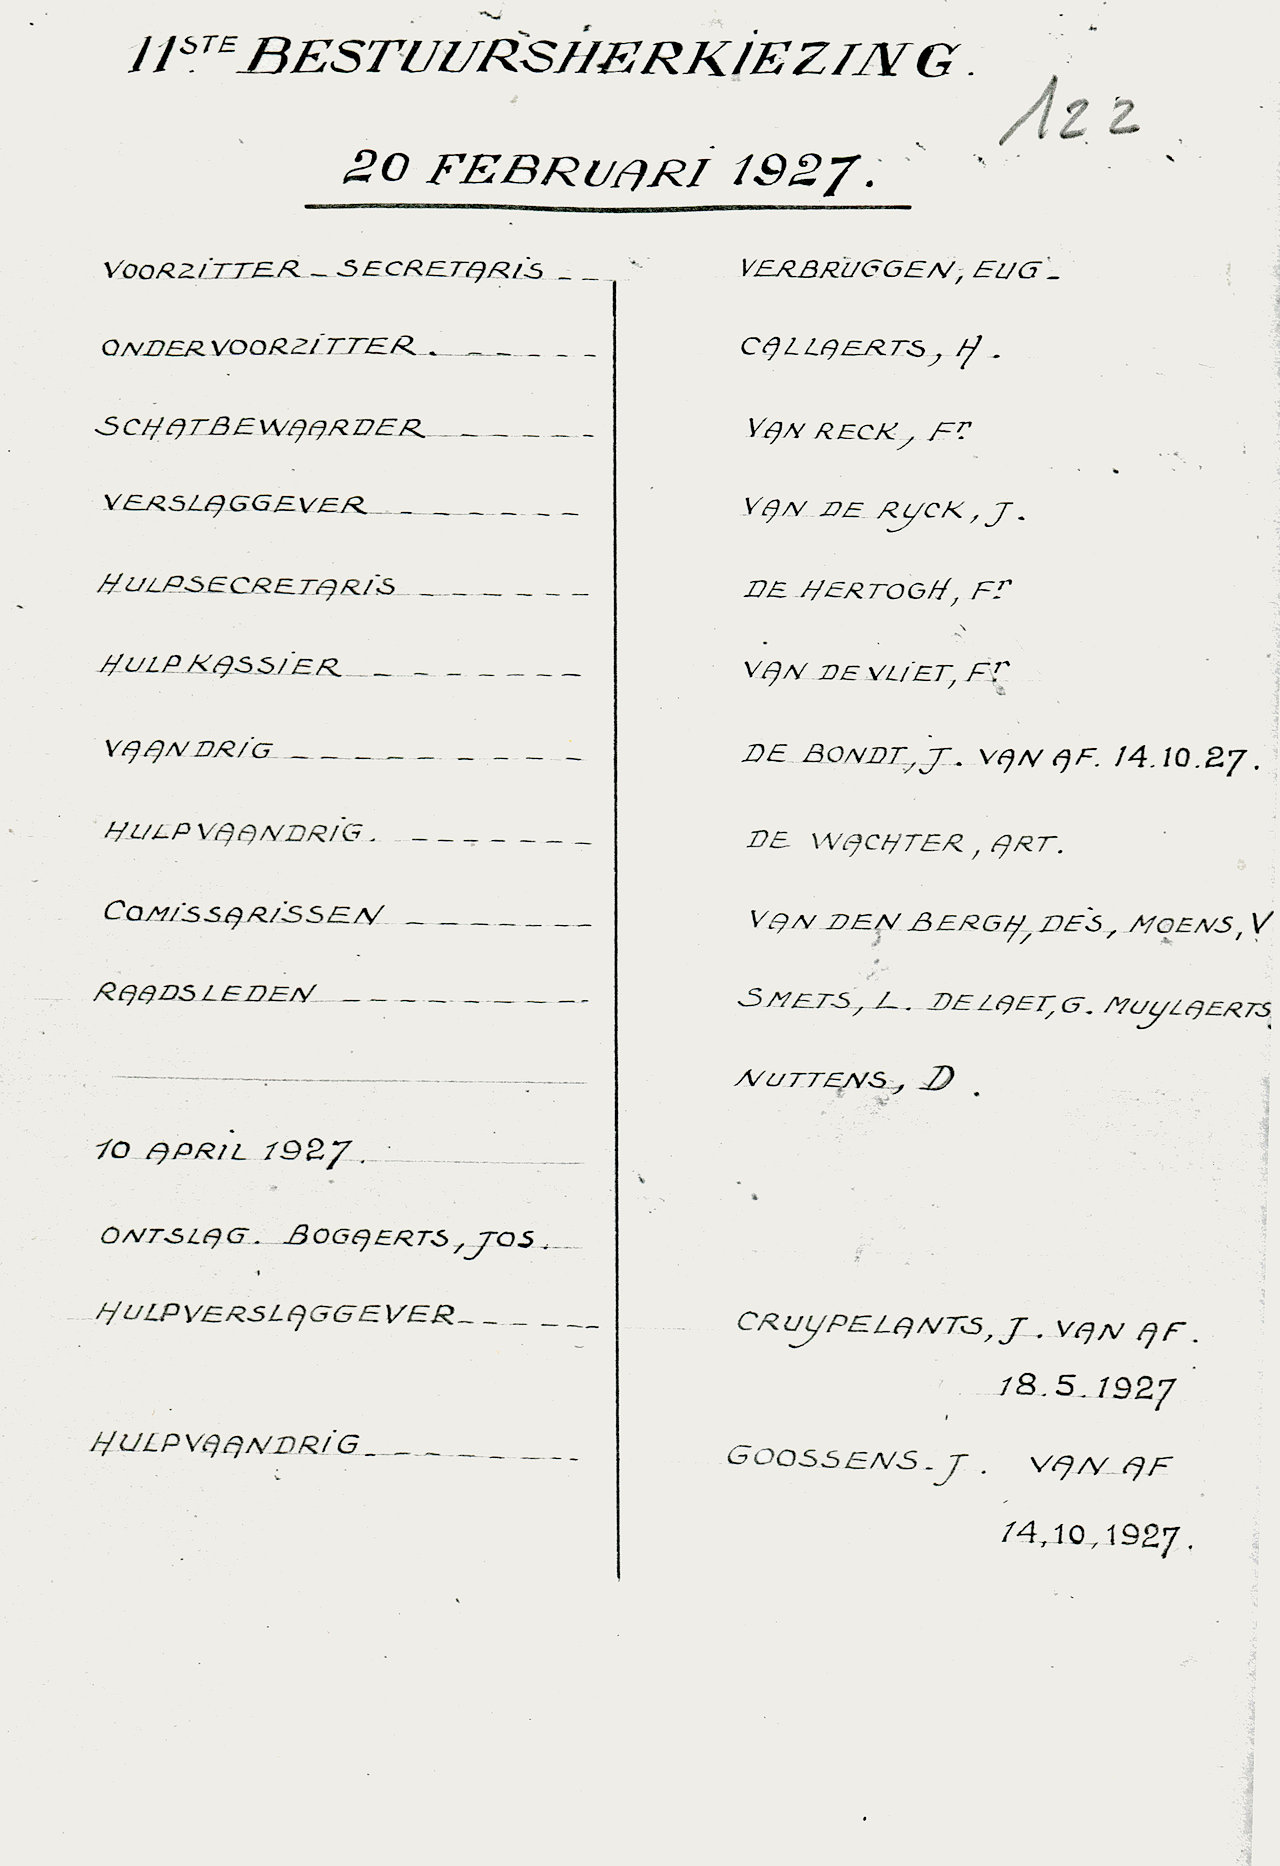 11STE BESTUURSHERKIEZING.
122
20 FEBRUARI 1927.
VOORZITTER - SECRETARIS - - VERBRUGGEN, EUG -
ONDERVOORZITTER. - - - - - CALLAERTS, H.
SCHATBEWAARDER - - - - - VAN RECK, Fr.
VERSLAGGEVER - - - - - - VAN DE RYCK, J.
HULPSECRETARIS - - - - - - DE HERTOGH, Fr.
HULPKASSIER - - - - - - - VAN DE VLIET, Fr.
VAANDRIG - - - - - - - - DE BONDT, J. VAN AF. 14.10.27.
HULPVAANDRIG. - - - - - - DE WACHTER, ART.
COMISSARISSEN - - - - - - VAN DEN BERGH, DES, MOENS, V
RAADSLEDEN - - - - - - - - SMETS, L. DE LAET, G. MUYLAERTS,
NUTTENS, D.
10 APRIL 1927.
ONTSLAG. BOGAERTS, JOS.
HULPVERSLAGGEVER - - - - - CRUYPELANTS, J. VAN AF.
18.5.1927
HULPVAANDRIG - - - - - - GOOSSENS - J. VAN AF
14,10,1927.